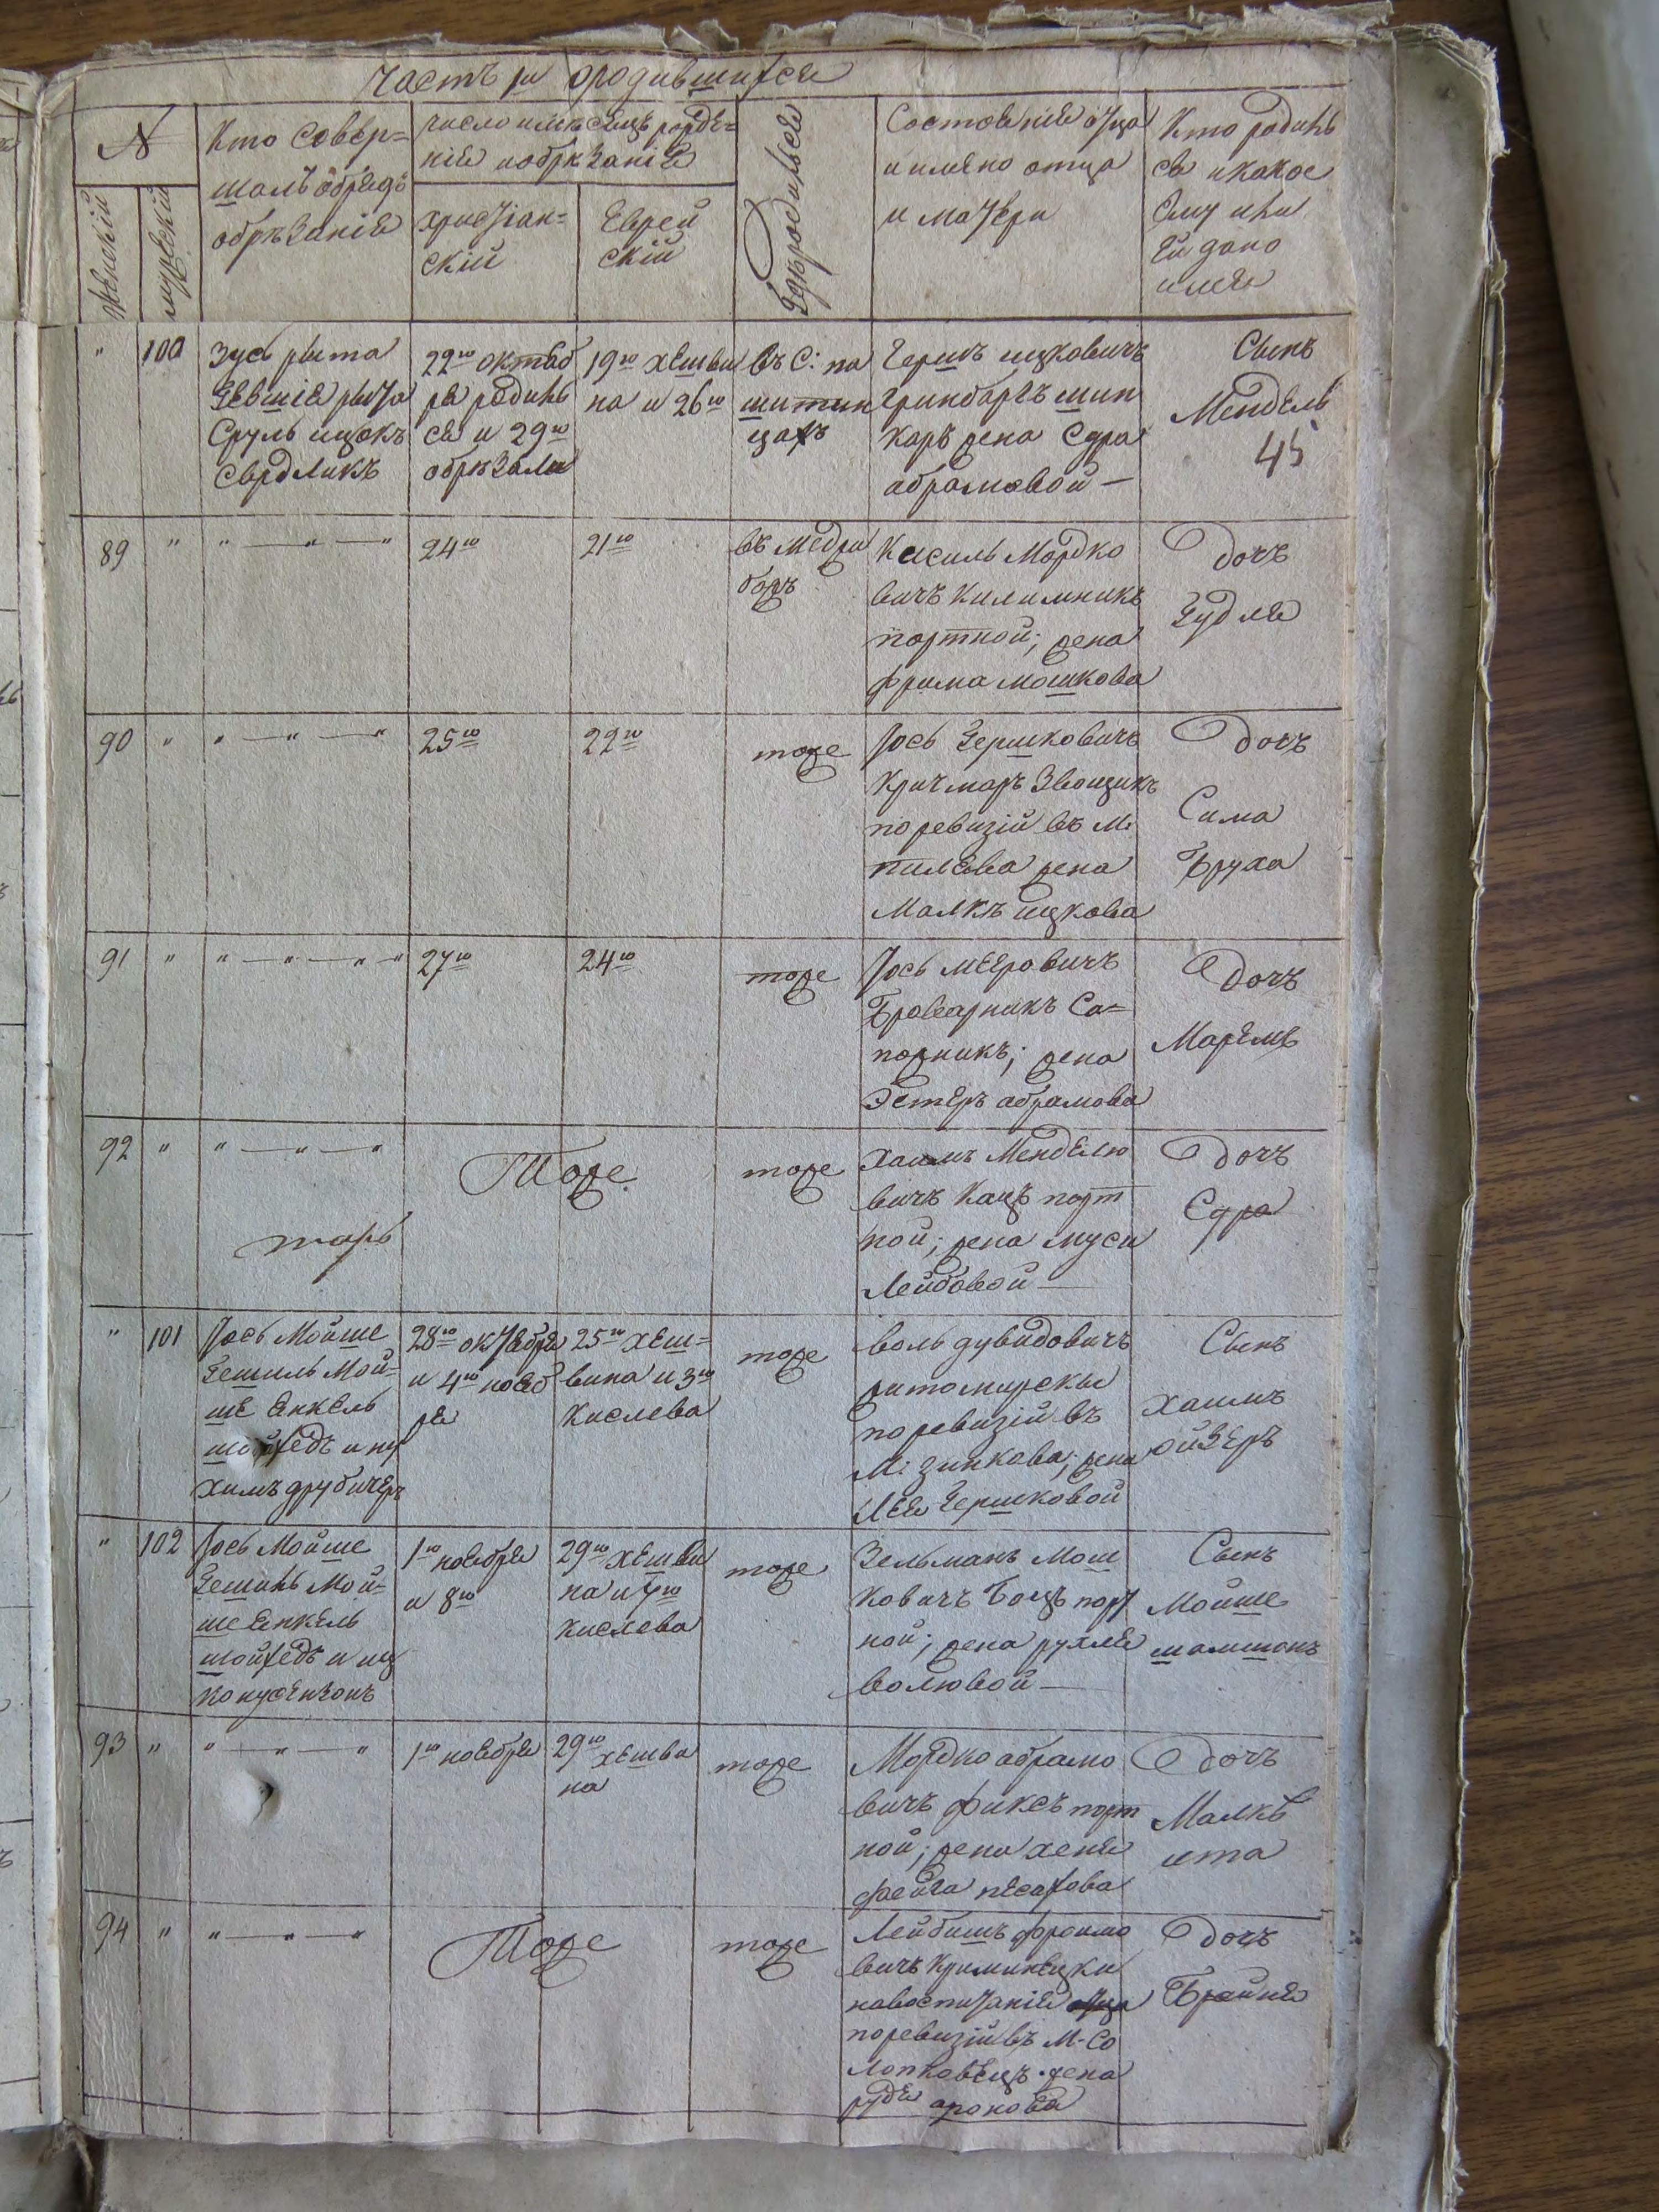 Часть I о родившихся
№
женскій
мужескій
Кто Совер=
шалъ обрядъ
обрѣзанія
число и мѣсяцъ рожде=
нія и обрѣзанія
христіан=
скій
Еврей
скій
Гдѣ родился
Состояніе отца
и имяно отца
и матери
Кто родиль
ся и какое
Ему или
Ей дано
имя
"
100
Зусь рыта
Сруль ицокъ
Свердликъ
22го октяб
ря родиль
ся и 29го
обрѣзали
19го хешви
на и 26го
въ С: па
шитин
цахъ
Гершъ ицковичъ
Гринбаргъ шин
каръ жена Сура
абрамовой —
Сынъ
Мендель
45
89
"
" — " — "
24го
21го
въ Медри
божъ
Кисиль Мордко
вичъ Килимникъ
портной; жена
фрима мошкова
Дочъ
Гудля
90
"
" — " — "
25го
22го
тоже
Іось Гершковичъ
Кричмаръ Звощикъ
по ревизіи въ М:
пилява жена
Малкѣ ицкова
Дочъ
Сима
Бруха
91
"
" — " — " — "
27го
24го
тоже
Іось мееровичъ
Броварникъ Са=
пожникъ; жена
Эстеръ абрамова
Дочъ
Маремъ
92
"
" — " — "
Тоже
тоже
Хаимъ Менделю
вичъ Кацъ порт
ной; жена муси
Лейбовой —
Дочъ
Сура
"
101
Іось Мойше
Гешиль Мой=
ше Енкель
шойхедъ и ну
химъ друбичеръ
28го октября
и 4го нояб
ря
25го хеш=
вина и 3го
Кислева
тоже
воль дувидовичъ
житомирскы
по ревизіи въ
М: зинкова; жена
Лея Гершковой
Сынъ
хаимъ
ойзеръ
"
102
Іось Мойше
Гешиль Мой=
ше Енкель
шойхедъ и иц
1го ноября
и 8го
29го хешви
на и 7го
Кислева
тоже
Зельманъ Мош
ковичъ Боцъ порт
ной; жена рухля
волювой —
Сынъ
Мойше
шамшонъ
93
"
" — " — "
1го ноября
29го хешви
на
тоже
Мордко абрамо
вичъ фиксъ порт
ной; жена хеня
фейга песахова
Дочъ
Малкѣ
ита
94
"
" — " — "
Тоже
тоже
Лейбишъ фроимо
вичъ Криминецки
на воспитаніе отца
по ревизіи въ М. Со
лопковецъ жена
рудя аронова
Дочъ
Брайня